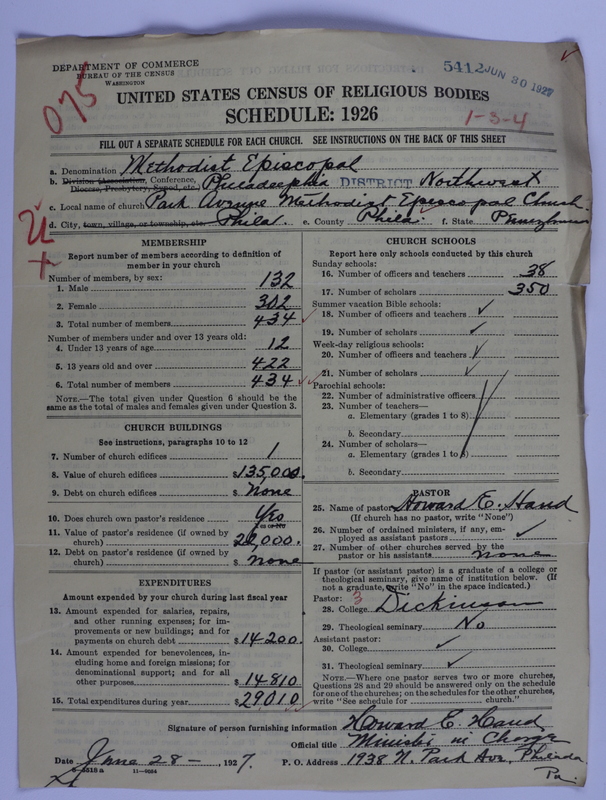 DEPARTMENT OF COMMERCE
BUREAU OF THE CENSUS
WASHINGTON
5412 JUN 30 1927
075
UNITED STATES CENSUS OF RELIGIOUS BODIES
SCHEDULE: 1926
1-3-4
FILL OUT A SEPARATE SCHEDULE FOR EACH CHURCH. SEE INSTRUCTIONS ON THE BACK OF THIS SHEET
a. Denomination Methodist Episcopal
b. Division (Association, Conference, Diocese, Presbytery, Synod, etc.) Philadelphia DISTRICT Northwest
c. Local name of church Park Avenue Methodist Episcopal Church
d. City, town, village, or township, etc. Phila. e. County Phila. f. State Pennsylvania
MEMBERSHIP
Report number of members according to definition of member in your church
Number of members, by sex:
1. Male 132
2. Female 302
3. Total number of members 434
Number of members under and over 13 years old:
4. Under 13 years of age 12
5. 13 years old and over 422
6. Total number of members 434
NOTE.—The total given under Question 6 should be the same as the total of males and females given under Question 3.
CHURCH BUILDINGS
See instructions, paragraphs 10 to 12
7. Number of church edifices 1
8. Value of church edifices $135,000.
9. Debt on church edifices $ None
10. Does church own pastor's residence Yes
Yes or No
11. Value of pastor's residence (if owned by church) 20,000.
12. Debt on pastor's residence (if owned by church) $ None
EXPENDITURES
Amount expended by your church during last fiscal year
13. Amount expended for salaries, repairs, and other running expenses; for improvements or new buildings; and for payments on church debt $14200.
14. Amount expended for benevolences, including home and foreign missions; for denominational support; and for all other purposes $14810
15. Total expenditures during year $29010
CHURCH SCHOOLS
Report here only schools conducted by this church
Sunday schools:
16. Number of officers and teachers 38
17. Number of scholars 350
Summer vacation Bible schools:
18. Number of officers and teachers ✓
19. Number of scholars ✓
Week-day religious schools:
20. Number of officers and teachers ✓
21. Number of scholars ✓
Parochial schools:
22. Number of administrative officers
23. Number of teachers—
a. Elementary (grades 1 to 8)
b. Secondary
24. Number of scholars—
a. Elementary (grades 1 to 8)
b. Secondary
PASTOR
25. Name of pastor Howard E. Hand
(If church has no pastor, write "None")
26. Number of ordained ministers, if any, employed as assistant pastors ✓
27. Number of other churches served by the pastor or his assistants None
If pastor (or assistant pastor) is a graduate of a college or theological seminary, give name of institution below. (If not a graduate, write "No" in the space indicated.)
Pastor: 3
28. College Dickinson
29. Theological seminary No
Assistant pastor:
30. College ✓
31. Theological seminary ✓
NOTE.—Where one pastor serves two or more churches, Questions 28 and 29 should be answered only on the schedule for one of the churches; on the schedules for the other churches, write "See schedule for ........ church."
Signature of person furnishing information Howard E. Hand
Official title Minister in Charge
Date June 28 — , 1927. P. O. Address 1938 N. Park Ave, Philada Pa.
8-5518 a 11-9024